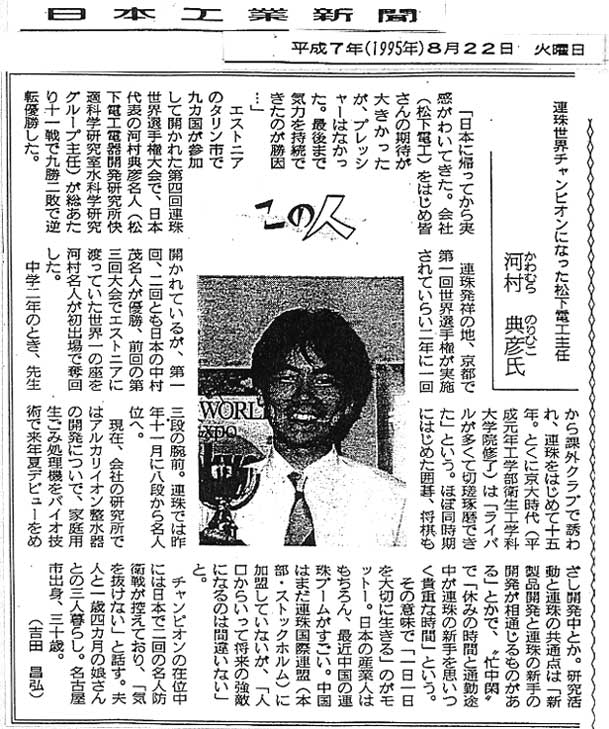 日本工業新聞
平成7年(1995年)8月22日 火曜日
連珠世界チャンピオンになった松下電工主任
かわむら のりひこ
河村 典彦氏
この人
「日本に帰ってから実
感がわいてきた。会社
(松下電工)をはじめ皆
さんの期待が
大きかった
が、プレッシ
ャーはなかっ
た。最後まで
気力を持続で
きたのが勝因
…」
エストニア
のタリン市で
九カ国が参加
して開かれた第四回連珠
世界選手権大会で、日本
代表の河村典彦名人(松
下電工電器開発研究所快
適科学研究室水科学研究
グループ主任)が総あた
り十一戦で九勝二敗で逆
転優勝した。
連珠発祥の地、京都で
第一回世界選手権が実施
されていらい二年に一回
開かれているが、第一
回、二回とも日本の中村
茂名人が優勝、前回の第
三回大会でエストニアに
渡っていた世界一の座を
河村名人が初出場で奪回
した。
中学二年のとき、先生
から課外クラブで誘わ
れ、連珠をはじめて十五
年。とくに京大時代(平
成元年工学部衛生工学科
大学院修了)は「ライバ
ルが多くて切瑳琢磨でき
た」という。ほぼ同時期
にはじめた囲碁、将棋も
三段の腕前。連珠では昨
年十一月に八段から名人
位へ。
現在、会社の研究所で
はアルカリイオン整水器
の開発について、家庭用
生ごみ処理機をバイオ技
術で来年夏デビューをめ
ざし開発中とか。研究活
動と連珠の共通点は「新
製品開発と連珠の新手の
開発が相通じるものがあ
る」とかで、〝忙中閑〟
で「休みの時間と通勤途
中が連珠の新手を思いつ
く貴重な時間」という。
その意味で「一日一日
を大切に生きる」のがモ
ットー。日本の産業人は
もちろん、最近中国の連
珠ブームがすごい。中国
はまだ連珠国際連盟(本
部・ストックホルム)に
加盟していないが、「人
口からいって将来の強敵
になるのは間違いない」
と。
チャンピオンの在位中
には日本で二回の名人防
衛戦が控えており、「気
を抜けない」と話す。夫
人と一歳四カ月の娘さん
との三人暮らし。名古屋
市出身、三十歳。
(吉田 昌弘)
WORL
EXPO